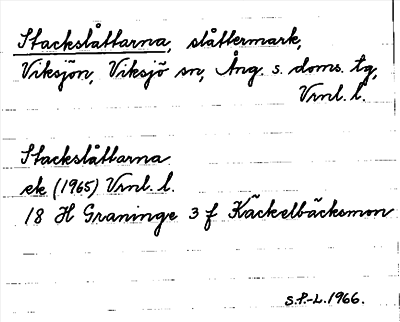 Stackslåttarna, slåttermark,
Viksjön, Viksjö sn, Ång. s. doms. tg,
Vrnl. l.
Stackslåttarna
ek (1965) Vrnl. l.
18 H Graninge 3 f Käckelbäcksmon
S.P.-L. 1966.